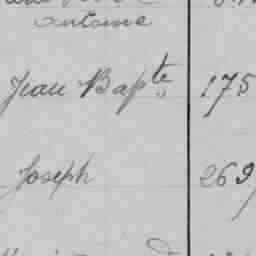 antoine
Jean Bapte 175
Joseph 269